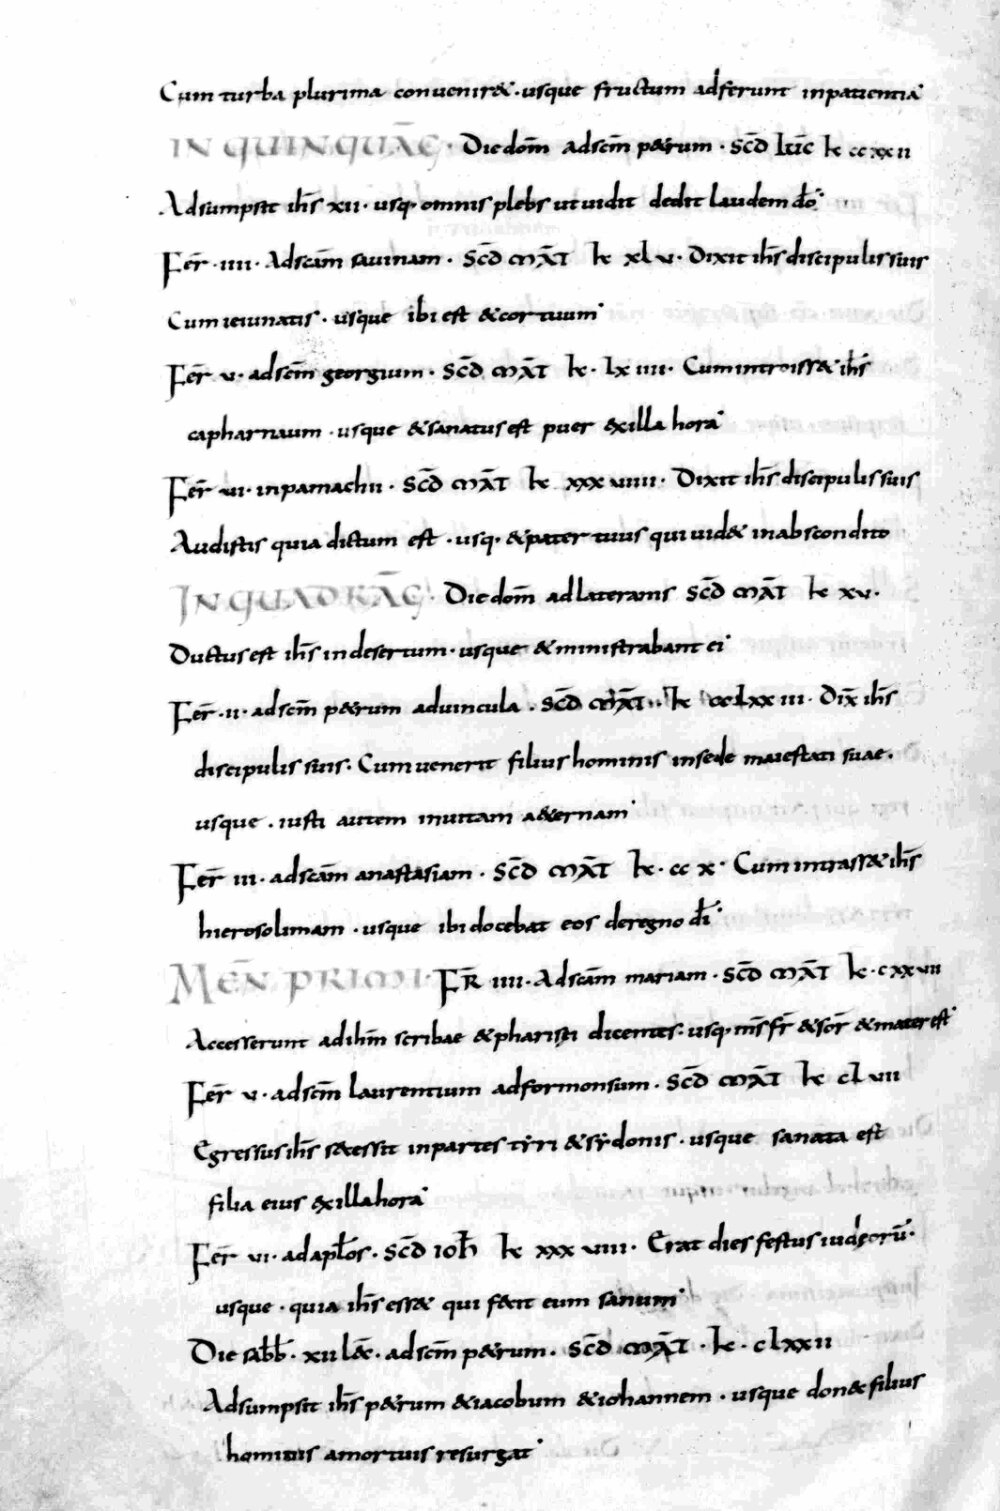 Cum turba plurima conuenir&·usque fructum adferunt inpatientia
IN QUINQUAḠ· Die dom̄ adscm̄ p&rum· sc̄d luc̄ k ccxxii
Adsumpsit ih̄s xii·usq·omnis plebs ut uidit dedit laudem dō
Fer̄·iiii·Adscām sauinam· sc̄d māt k xlv·Dixit ih̄s discipulis suis
Cum ieiunatis·usque ibi est &cor tuum
Fer̄ v·adscm̄ georgium·sc̄d māt k·lxiiii·Cum introiss& ih̄s
capharnaum·usque &sanatus est puer exilla hora
Fer̄ vi·inpamachii·sc̄d māt k xxxviiii·Dixit ih̄s discipulis suis
Audistis quia dictum est·usq·&pater tuus qui uid& inabscondito
IN QUADRAḠ· Die dom̄ adlateranis sc̄d māt k xv·
Ductus est ih̄s indesertum·usque &ministrabant ei
Fer̄·ii·adscm̄ p&rum aduincula·sc̄d māt·k cclxxiii·Dix̄ ih̄s
discipulis suis·Cum uenerit filius hominis insede maiestati suae·
usque·iusti autem inuitam a&ernam
Fer̄ iii·adscām anastasiam·sc̄d māt k·ccx·Cum intrass& ih̄s
hierosolimam·usque ibi docebat eos deregno dī
MEN̄ PRIMI·FR̄ iiii·Adscām mariam·sc̄d māt k·cxxvii
Accesserunt adihm̄ scribae &pharisęi dicentes·usq·m̄s fr̄ &sor̄ &mater est
Fer̄ v·adscm̄ laurentium adformonsum·sc̄d māt k clvii
Egressus ih̄s s&cessit inpartes tẏri &sẏdonis·usque sanata est
filia eius exilla hora
Fer̄ vi·adapl̄os·sc̄d ioh̄ k xxxviii·Erat dies festus iudęorū·
usque·quia ih̄s ess& qui fecit eum sanum
Die sab̄b·xii lēc·adscm̄ p&rum·sc̄d māt·k·clxxii
Adsumpsit ih̄s p&rum &iacobum &iohannem·usque donec filius
hominis amortuis resurgat